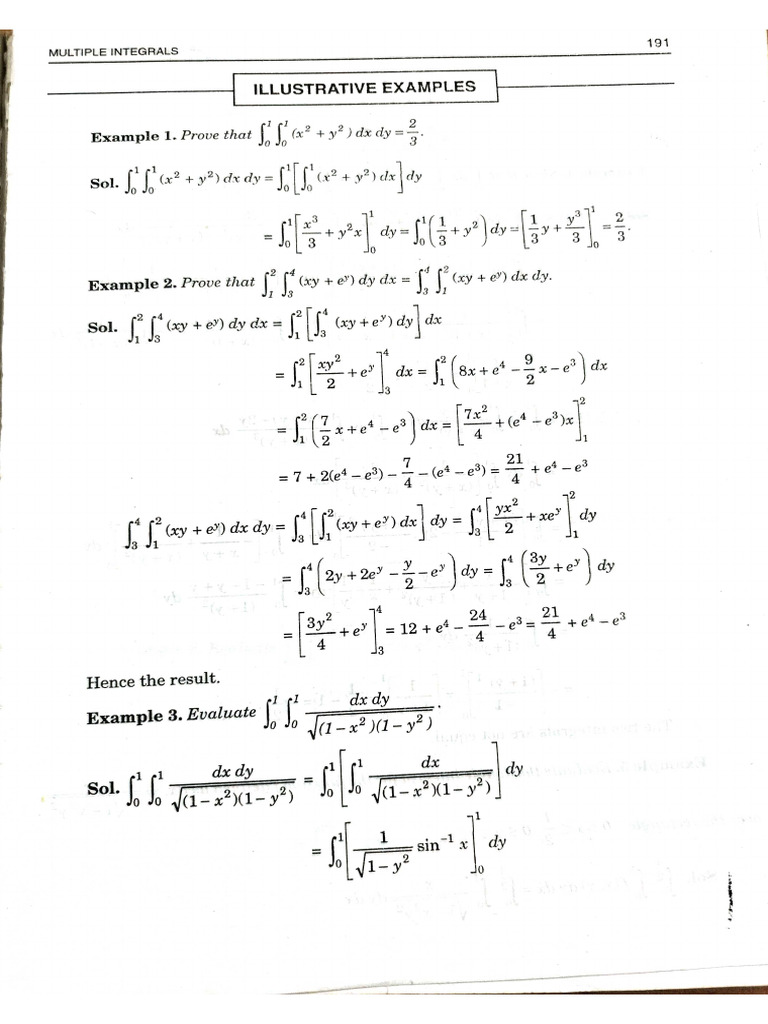 MULTIPLE INTEGRALS 191
ILLUSTRATIVE EXAMPLES
Example 1. Prove that ∫₀¹ ∫₀¹ (x² + y²) dx dy = 2/3.
Sol. ∫₀¹ ∫₀¹ (x² + y²) dx dy = ∫₀¹ [∫₀¹ (x² + y²) dx] dy
= ∫₀¹ [x³/3 + y²x]₀¹ dy = ∫₀¹ (1/3 + y²) dy = [1/3 y + y³/3]₀¹ = 2/3.
Example 2. Prove that ∫₁² ∫₃⁴ (xy + eʸ) dy dx = ∫₃⁴ ∫₁² (xy + eʸ) dx dy.
Sol. ∫₁² ∫₃⁴ (xy + eʸ) dy dx = ∫₁² [∫₃⁴ (xy + eʸ) dy] dx
= ∫₁² [xy²/2 + eʸ]₃⁴ dx = ∫₁² (8x + e⁴ − 9/2 x − e³) dx
= ∫₁² (7/2 x + e⁴ − e³) dx = [7x²/4 + (e⁴ − e³)x]₁²
= 7 + 2(e⁴ − e³) − 7/4 − (e⁴ − e³) = 21/4 + e⁴ − e³
∫₃⁴ ∫₁² (xy + eʸ) dx dy = ∫₃⁴ [∫₁² (xy + eʸ) dx] dy = ∫₃⁴ [yx²/2 + xeʸ]₁² dy
= ∫₃⁴ (2y + 2eʸ − y/2 − eʸ) dy = ∫₃⁴ (3y/2 + eʸ) dy
= [3y²/4 + eʸ]₃⁴ = 12 + e⁴ − 24/4 − e³ = 21/4 + e⁴ − e³
Hence the result.
Example 3. Evaluate ∫₀¹ ∫₀¹ dx dy/√((1 − x²)(1 − y²)).
Sol. ∫₀¹ ∫₀¹ dx dy/√((1 − x²)(1 − y²)) = ∫₀¹ [∫₀¹ dx/√((1 − x²)(1 − y²))] dy
= ∫₀¹ [1/√(1 − y²) sin⁻¹ x]₀¹ dy